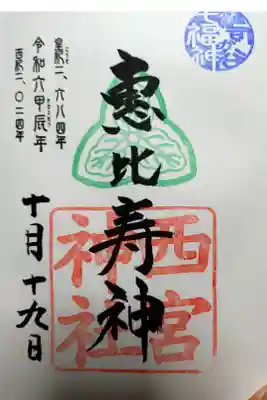 七福神
惠比寿神
西宮
神社
皇紀二、六八四年
令和六甲辰年
西紀二、〇二四年
十月十九日